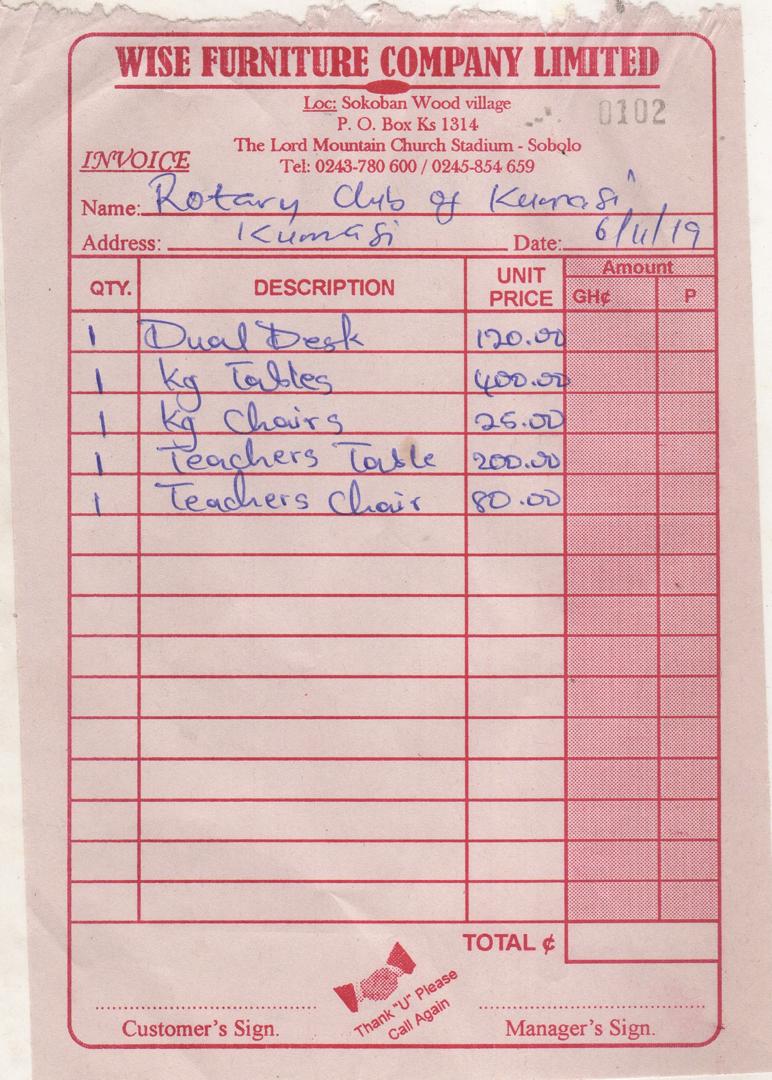 WISE FURNITURE COMPANY LIMITED
Loc: Sokoban Wood village
P. O. Box Ks 1314
0102
The Lord Mountain Church Stadium - Sobolo
INVOICE
Tel: 0243-780 600 / 0245-854 659
Name: Rotary Club of Kumasi
Address: Kumasi Date: 6/11/19
QTY. DESCRIPTION UNIT PRICE Amount GH¢ P
1 Dual Desk 120.00
1 Kg Tables 400.00
1 Kg Chairs 25.00
1 Teachers Table 200.00
1 Teachers Chair 80.00
TOTAL ¢
Thank "U" Please
Call Again
Customer's Sign. Manager's Sign.